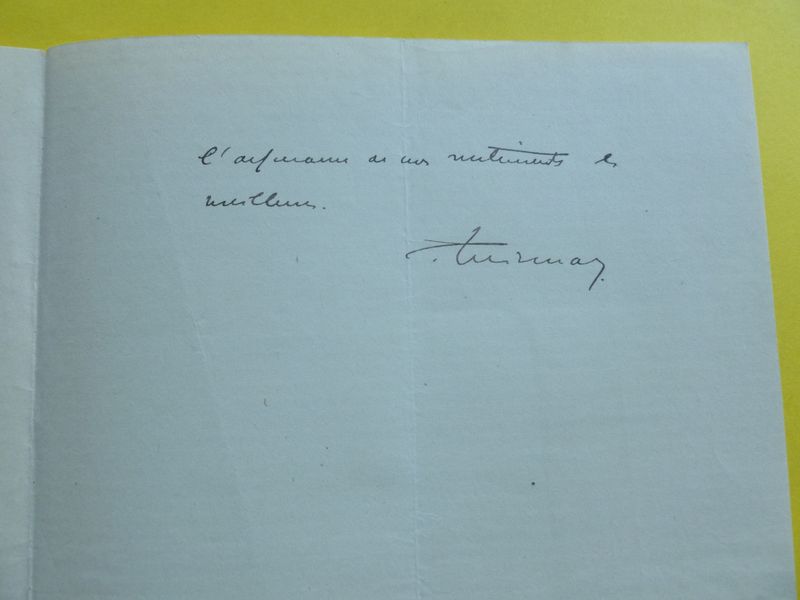 l'assurance de nos sentiments les
meilleurs.